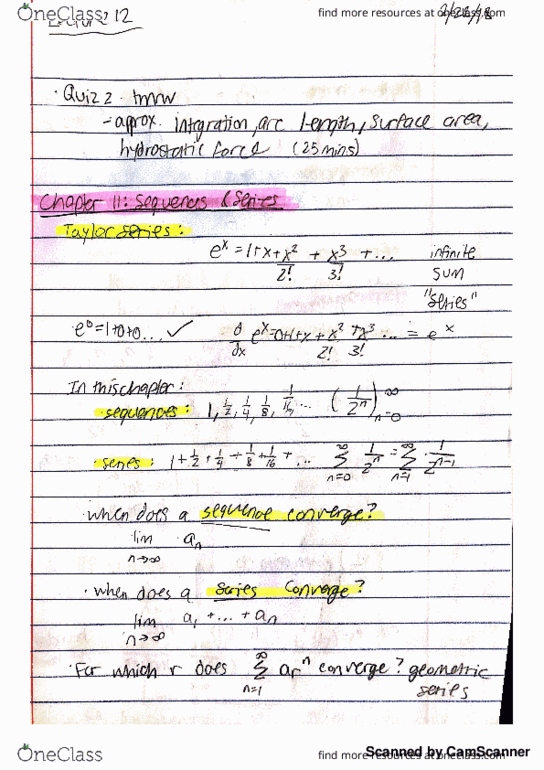 OneClass
find more resources at oneclass.com
12
· Quiz 2 · tmrw
- aprox. integration, arc length, surface area,
hydrostatic force (25 mins)
Chapter 11: Sequences & Series
Taylor Series:
e^x = 1+x+x²/2! + x³/3! + ... infinite
sum
"series"
· e⁰=1+0+0... ✓ d/dx e^x=0+1+x+x²/2!+x³/3! ... = e^x
In this chapter:
· sequences: 1, 1/2, 1/4, 1/8, 1/16, ... (1/2ⁿ)^∞_n=0
· series: 1+1/2+1/4+1/8+1/16+... ∞Σn=0 1/2ⁿ = ∞Σn=1 1/2^n-1
· when does a sequence converge?
lim aₙ
n→∞
· when does a series converge?
lim a₁+...+aₙ
n→∞
· For which r does ∞Σn=1 arⁿ converge? geometric
series
OneClass
find more resources at oneclass.com
Scanned by CamScanner